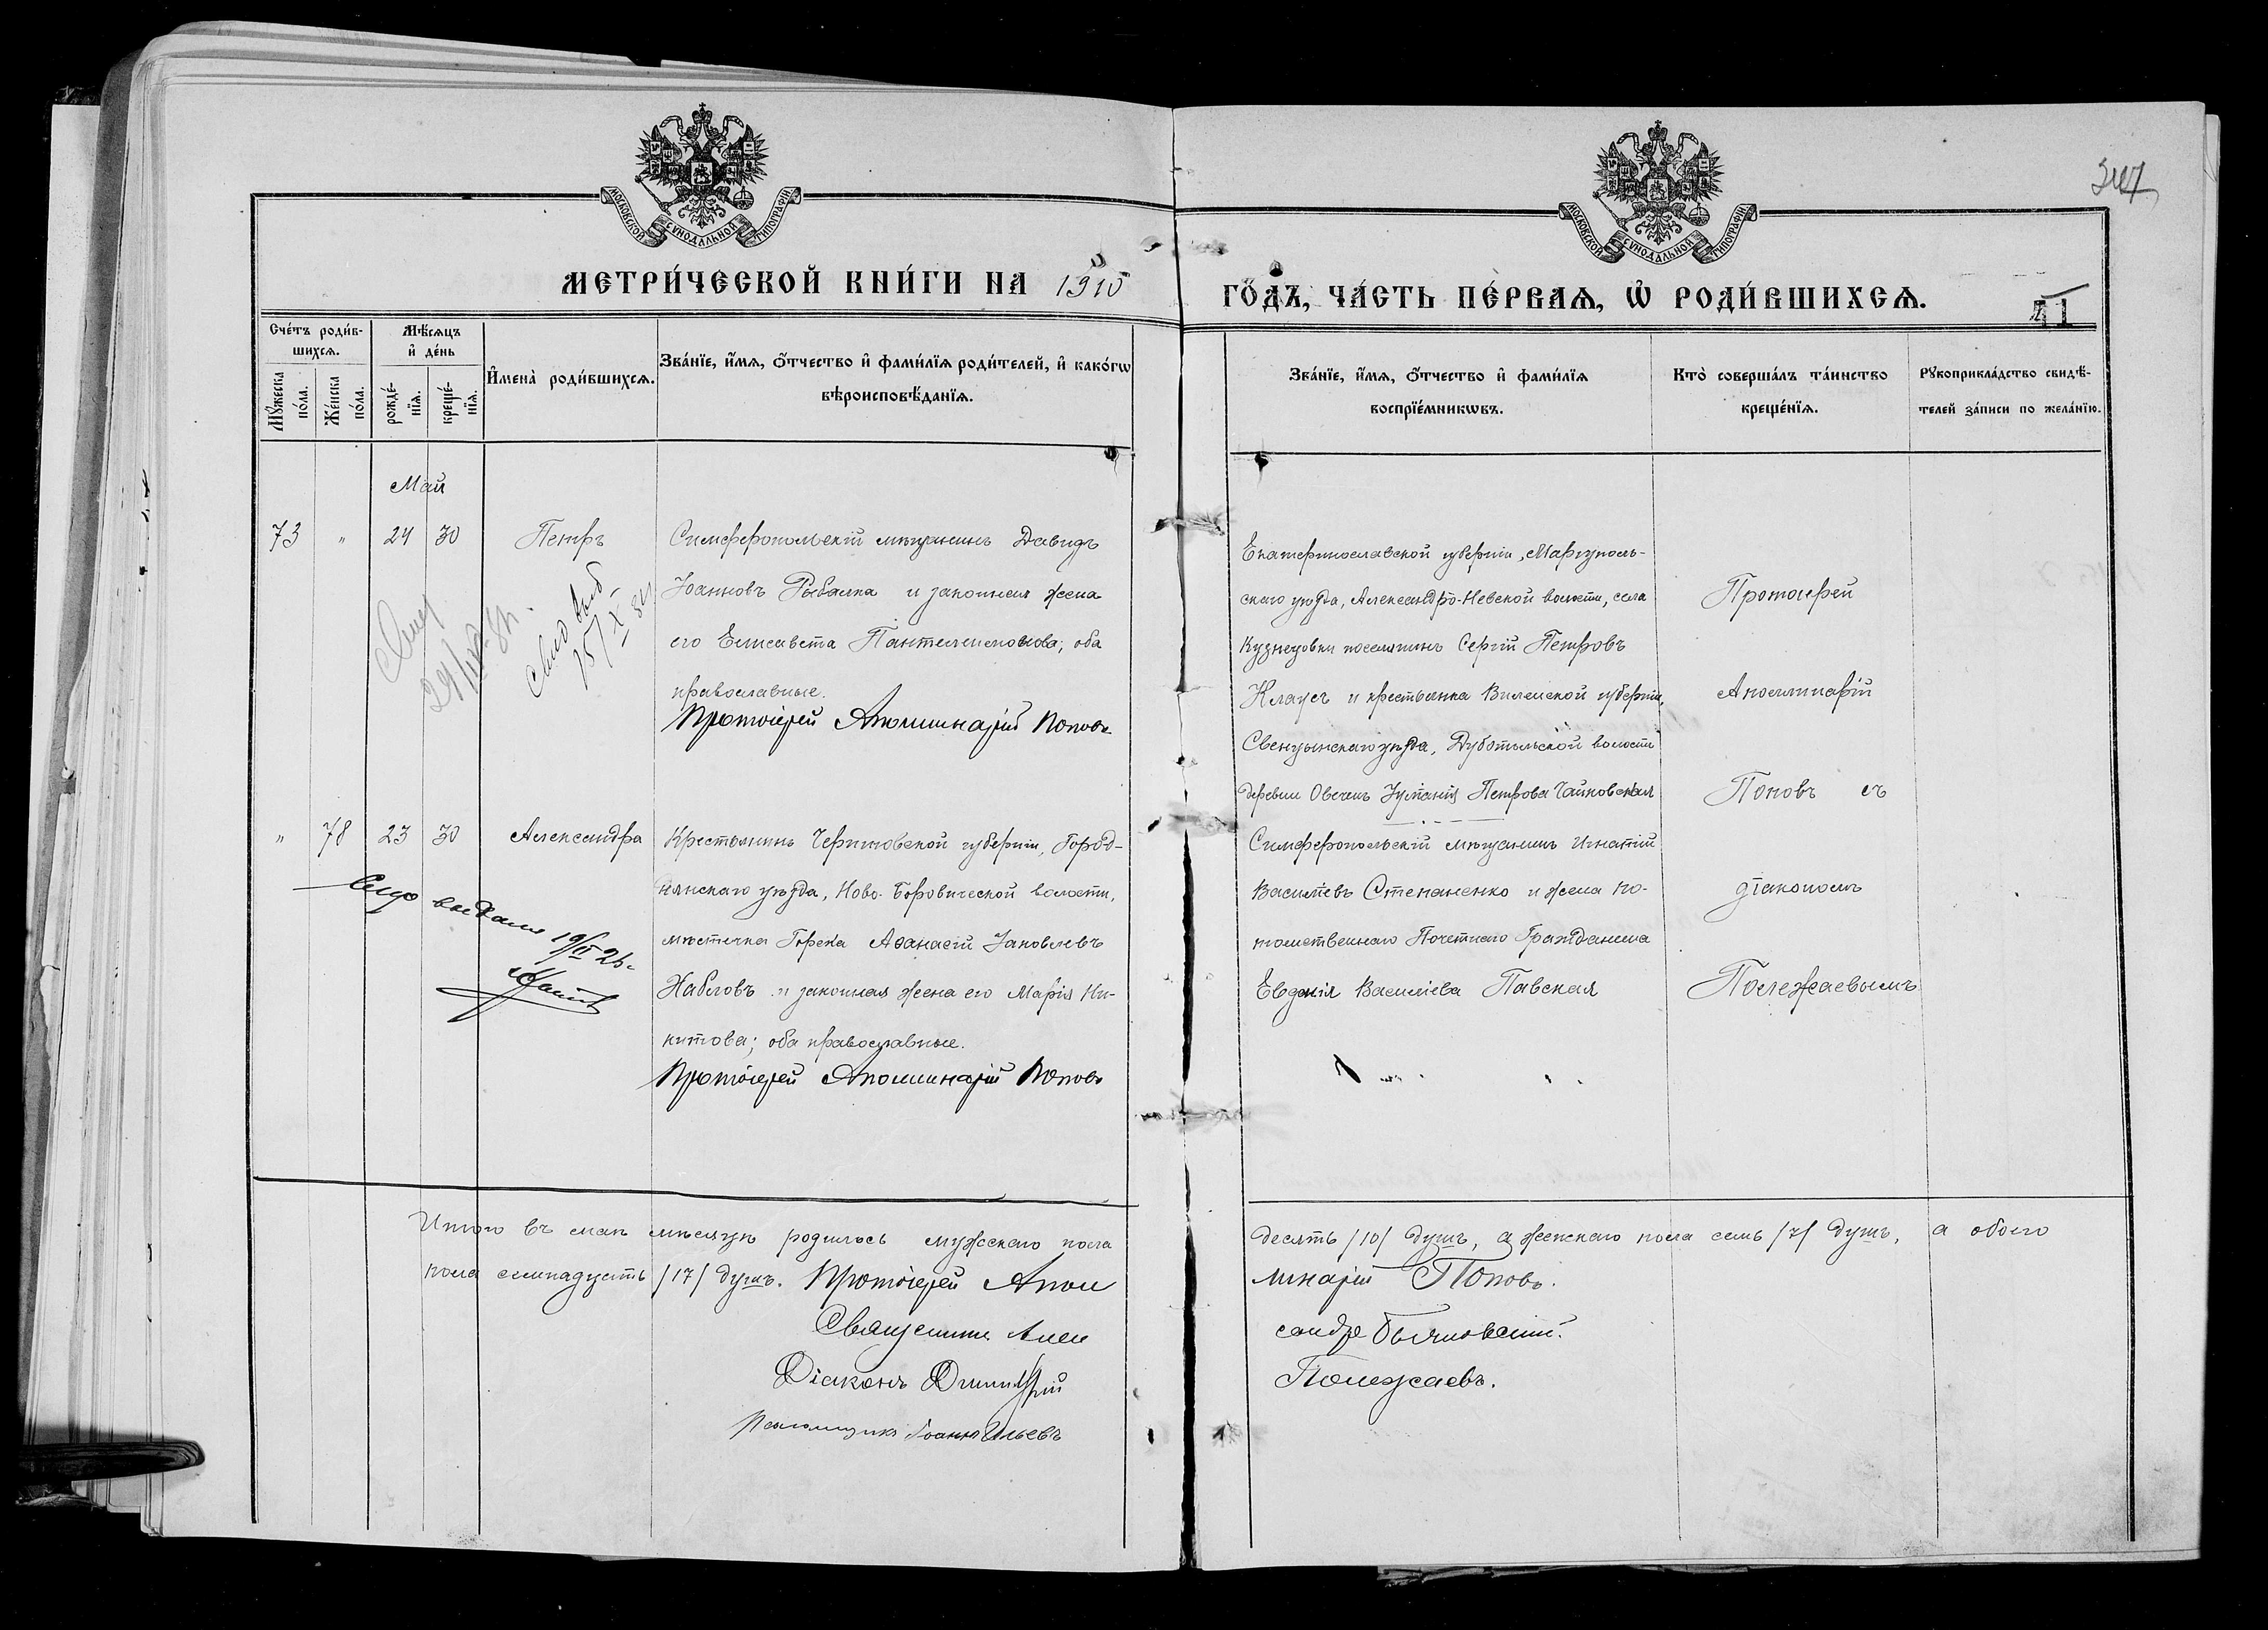 347
МОСКОВСКОЙ СУНОДАЛЬНОЙ ТИПОГРАФІИ
МОСКОВСКОЙ СУНОДАЛЬНОЙ ТИПОГРАФІИ
МЕТРИ́ЧЕСКОЙ КНИ́ГИ НА 1910
ГО́ДЪ, ЧА́СТЬ ПЕ́РВАѦ, Ѡ҆ РОДИ́ВШИХСѦ.
41
Сче́тъ роди́в-
шихсѧ.
Мꙋ́жеска по́ла.
Же́нска по́ла.
Мѣ́сѧцъ
и҆ де́нь
рожде́-
нїѧ.
креще́-
нїѧ.
И҆мена̀ роди́вшихсѧ.
Зва́нїе, и҆́мѧ, ѻ҆́тчество и҆ фами́лїѧ роди́телей, и҆ како́гѡ
вѣроисповѣ́данїѧ.
Зва́нїе, и҆́мѧ, ѻ҆́тчество и҆ фами́лїѧ
воспрїе́мникѡвъ.
Кто̀ соверша́лъ та́инство
креще́нїѧ.
Рꙋкоприкла́дство свидѣ́-
телей за́писи по жела́нїю.
Май
73 " 24 30 Петръ
Симферопольскій мѣщанинъ Давидъ
Іоанновъ Рыбалка и законная жена
его Елисавета Пантелеимонова; оба
православные.
Протоіерей Аполлинарій Поповъ
Екатеринославской губерніи, Маріуполь-
скаго уѣзда, Александро-Невской волости, села
Кузнецовки поселянинъ Сергій Петровъ
Клаусъ и крестьянка Виленской губерніи,
Свенцянскаго уѣзда, Дуботыльской волости
деревни Овечекъ Іуліанія Петрова Чайковская
Протоіерей
Аполлинарій
Поповъ съ
діакономъ
Полежаевымъ
" 78 23 30 Александра
Крестьянинъ Черниговской губерніи, Город-
нянскаго уѣзда, Ново-Боровической волости,
мѣстечка Горска Аѳанасій Іаковлевъ
Хабловъ и законная жена его Марія Ни-
китова; оба православные.
Протоіерей Аполлинарій Поповъ
выдано 19/II 26
Симферопольскій мѣщанинъ Игнатій
Василіевъ Степаненко и жена по-
томственнаго Почетнаго Гражданина
Евдокія Василіева Павская
Итого въ маѣ мѣсяцѣ родилось мужскаго пола
десять /10/ душъ, а женскаго пола семь /7/ душъ, а обоего
пола семнадцать /17/ душъ. Протоіерей Апол
линарій Поповъ.
Священникъ Алек
сандръ
Діаконъ Димитрій
Полежаевъ.
Псаломщикъ Іоаннъ Ильевъ